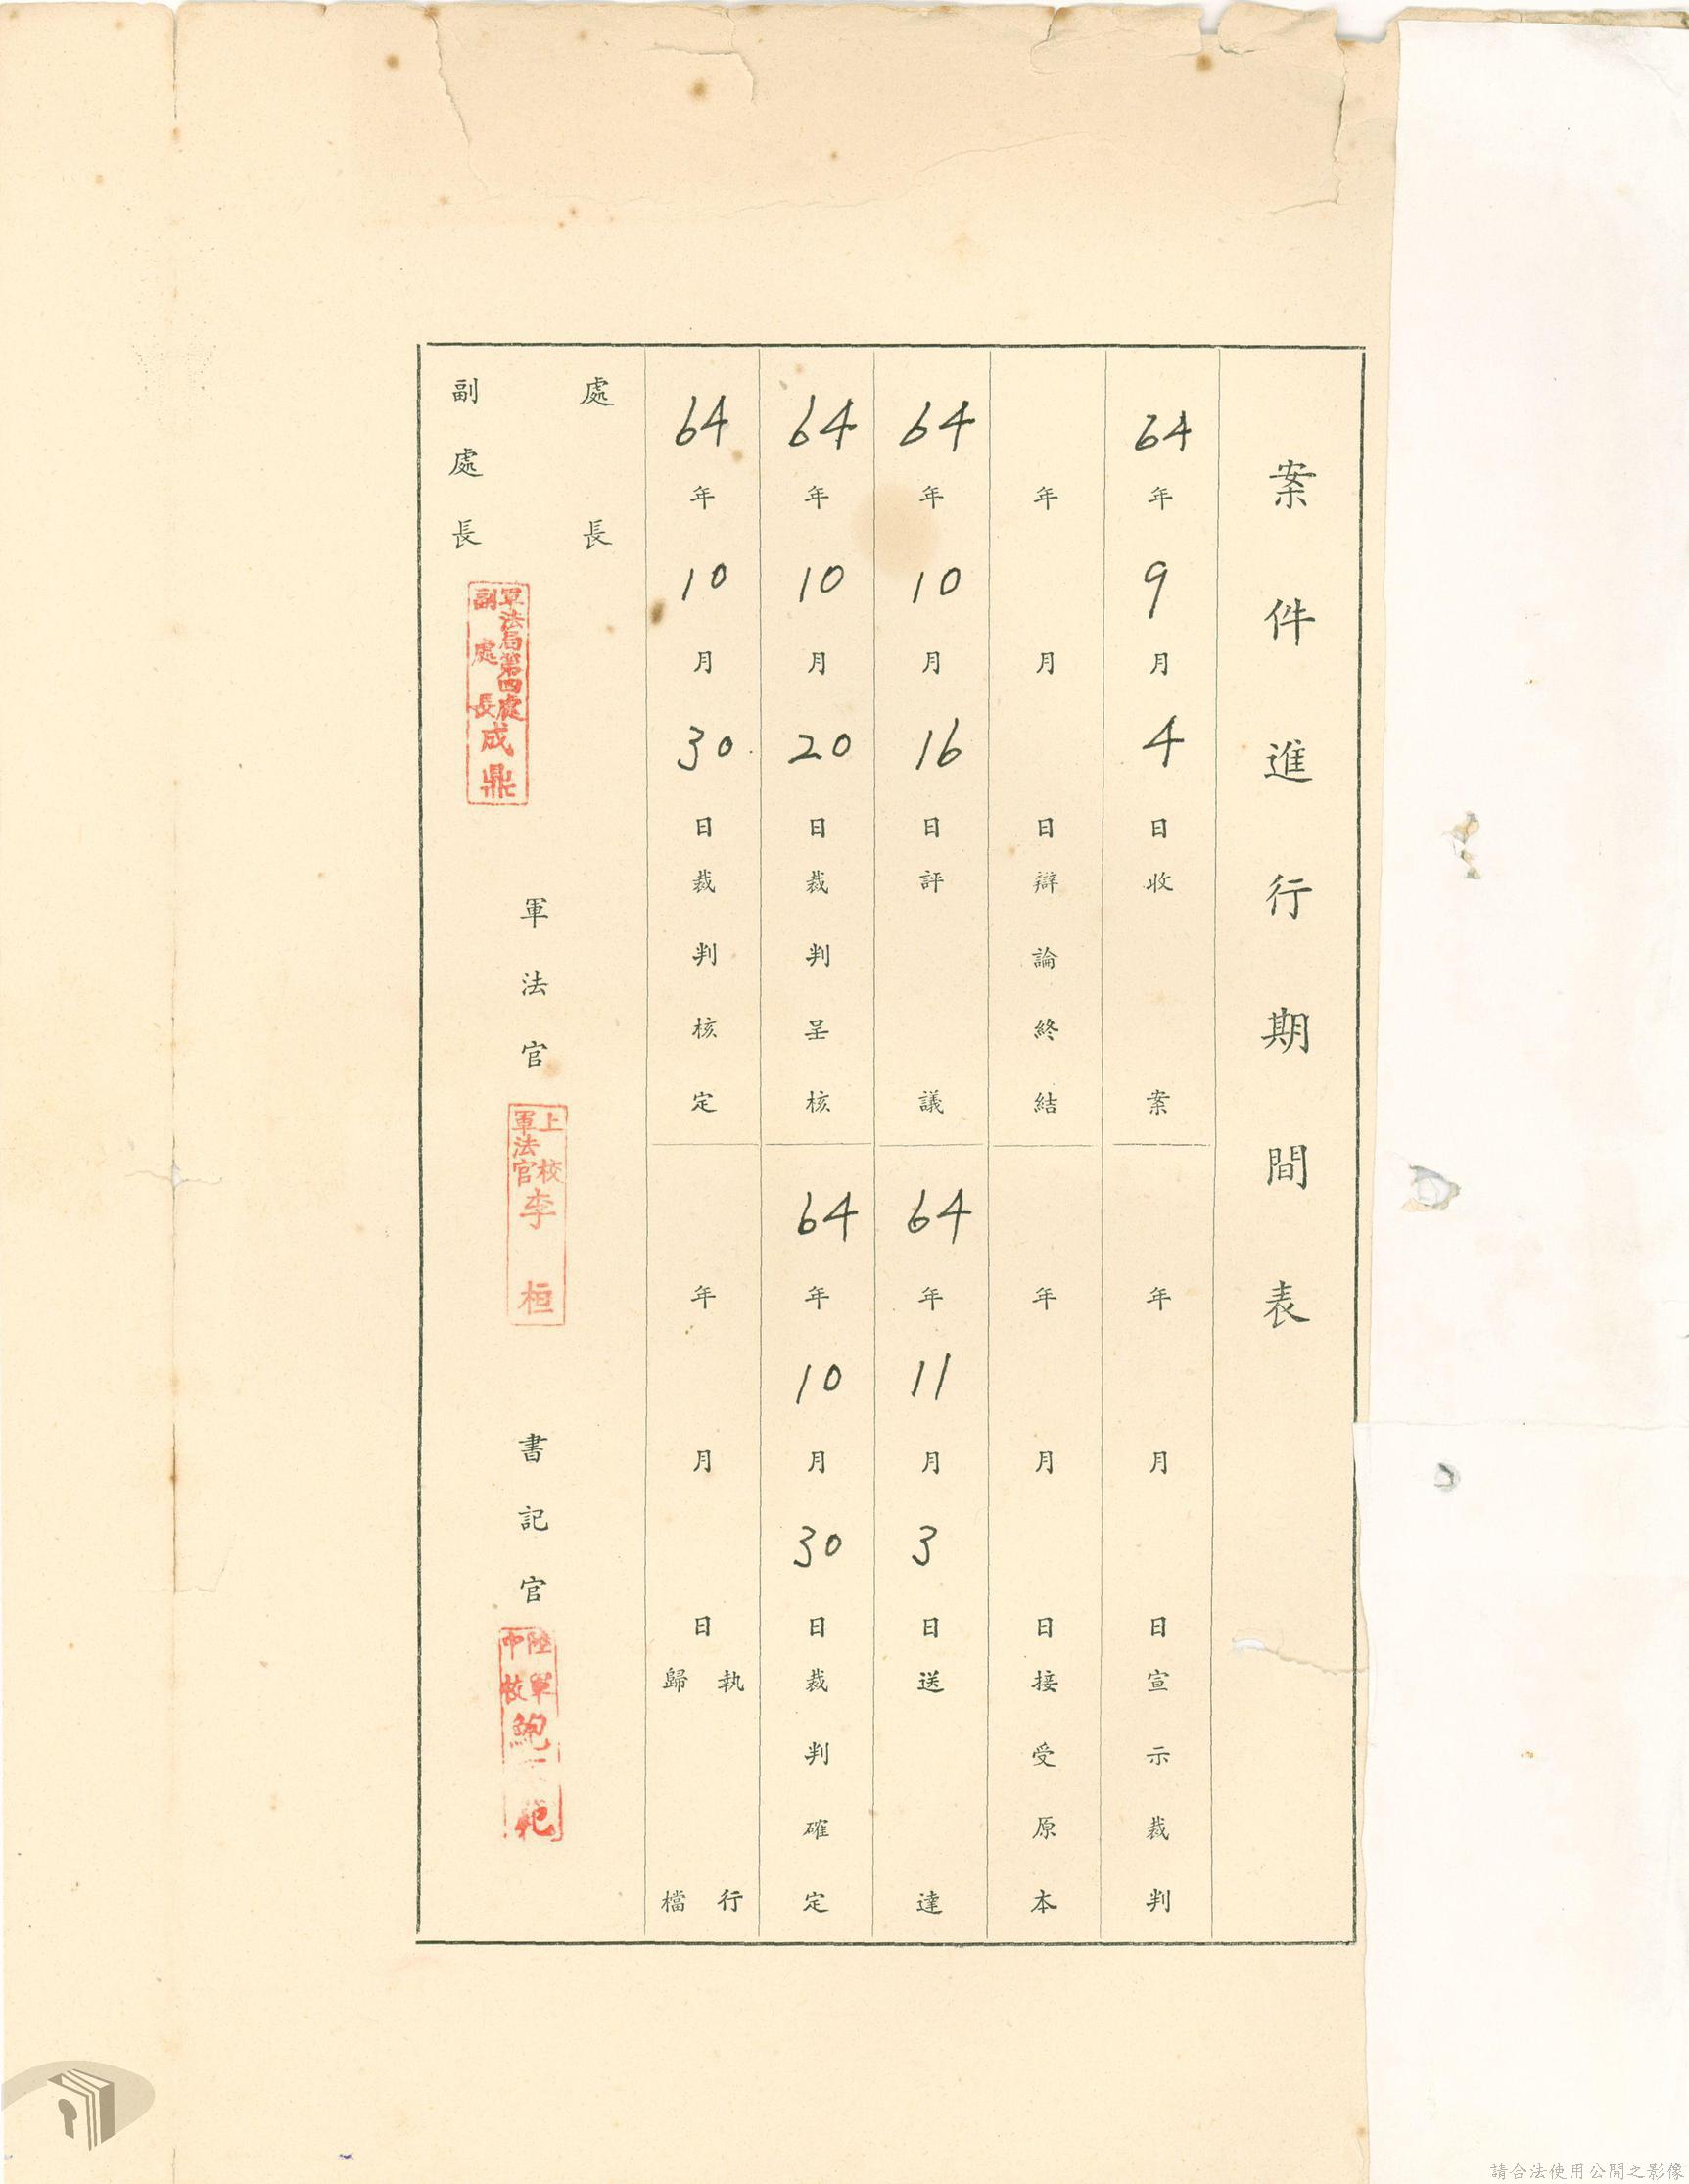 案件進行期間表
64年9月4日收案
年月日宣示裁判
年月日辯論終結
年月日接受原本
64年10月16日評議
64年11月3日送達
64年10月20日裁判呈核
64年10月30日裁判確定
64年10月30日裁判核定
年月日執行歸檔
處長
副處長
軍法局第四處
副處長
成鼎
軍法官
上校
軍法官
李桓
書記官
陸軍
中校
鮑
範
請合法使用公開之影像